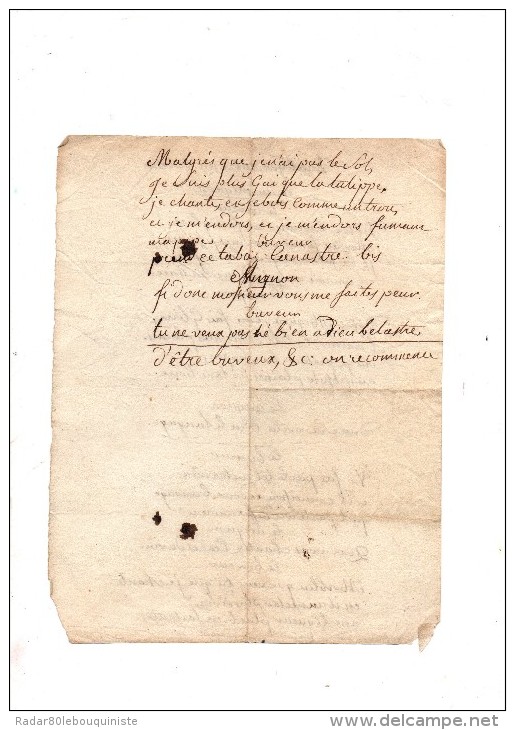 Malgrés que je n'ai pas le Sol,
je suis plus Gai que la tulippe,
je chante, et je bois comme un trou,
et je m'endors, et je m'endors fumant
ma pipe buveur
ce tabac Canastre. bis
Mignon
fi donc monsieur vous me faites peur.
buveur
tu ne veux pas hé bien adieu belastre,
d'être buveux, &c: on recommence
Radar80lebouquiniste
www.delcampe.net